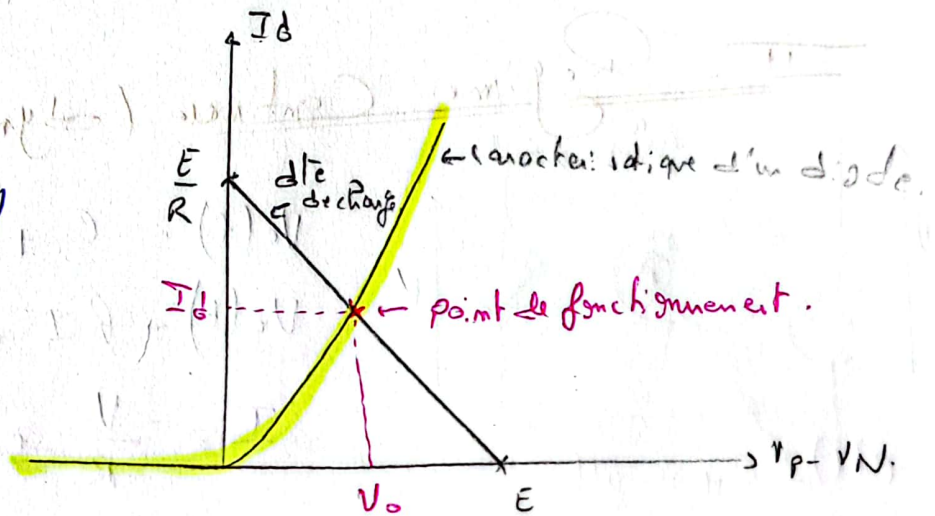 Id
E
R
dte
de charge
← caractéristique d'un diode.
Id
← point de fonctionnement.
Vp - VN.
V0
E